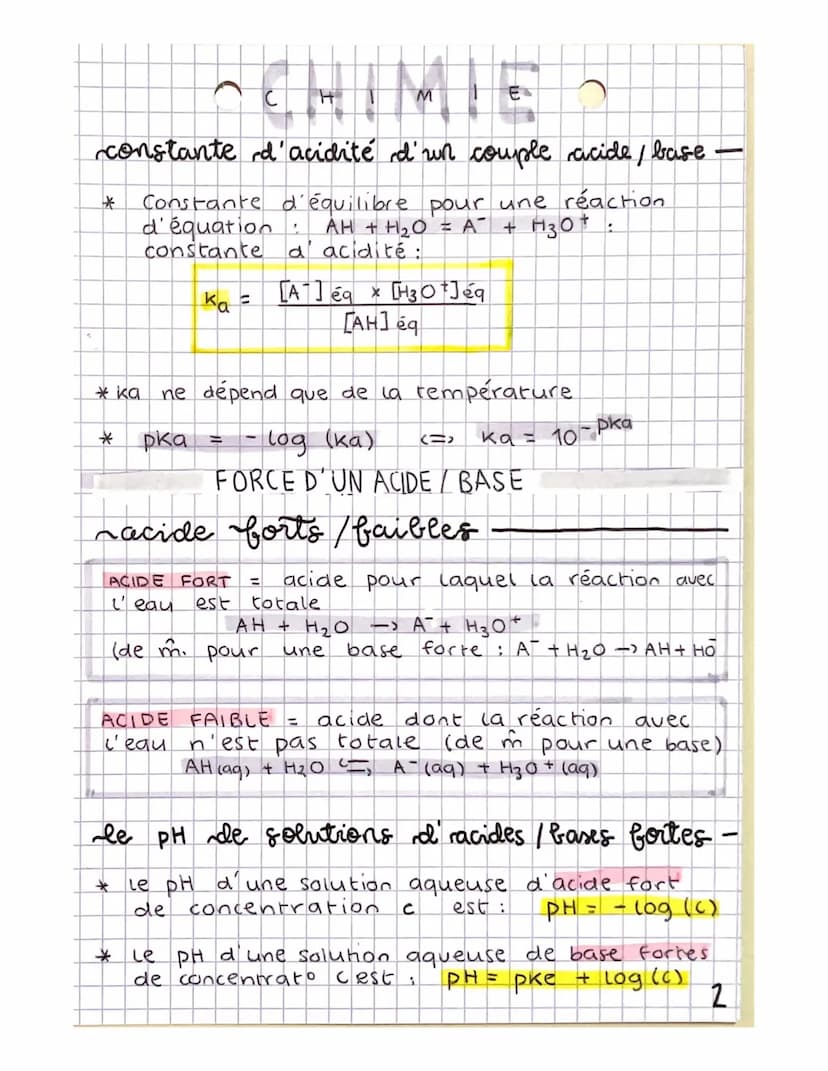 CHIMIE
C H I M I E
constante d'acidité d'un couple acide / base —
* Constante d'équilibre pour une réaction
d'équation : AH + H₂O = A⁻ + H₃O⁺ :
constante d'acidité :
Ka = [A⁻] éq × [H₃O⁺] éq
[AH] éq
* ka ne dépend que de la température
* pka = - log (ka) <=> ka = 10^-pka
FORCE D'UN ACIDE / BASE
acide forts / faibles
ACIDE FORT = acide pour laquel la réaction avec
l'eau est totale
AH + H₂O -> A⁻ + H₃O⁺
(de m̂. pour une base forte : A⁻ + H₂O -> AH + HO⁻
ACIDE FAIBLE = acide dont la réaction avec
l'eau n'est pas totale (de m̂ pour une base)
AH(aq) + H₂O ⇆ A⁻(aq) + H₃O⁺(aq)
le pH de solutions d'acides / bases fortes -
* Le pH d'une solution aqueuse d'acide fort
de concentration c est : pH = - log (c)
* Le pH d'une solution aqueuse de base fortes
de concentrat° c est : pH = pke + log (c)
2